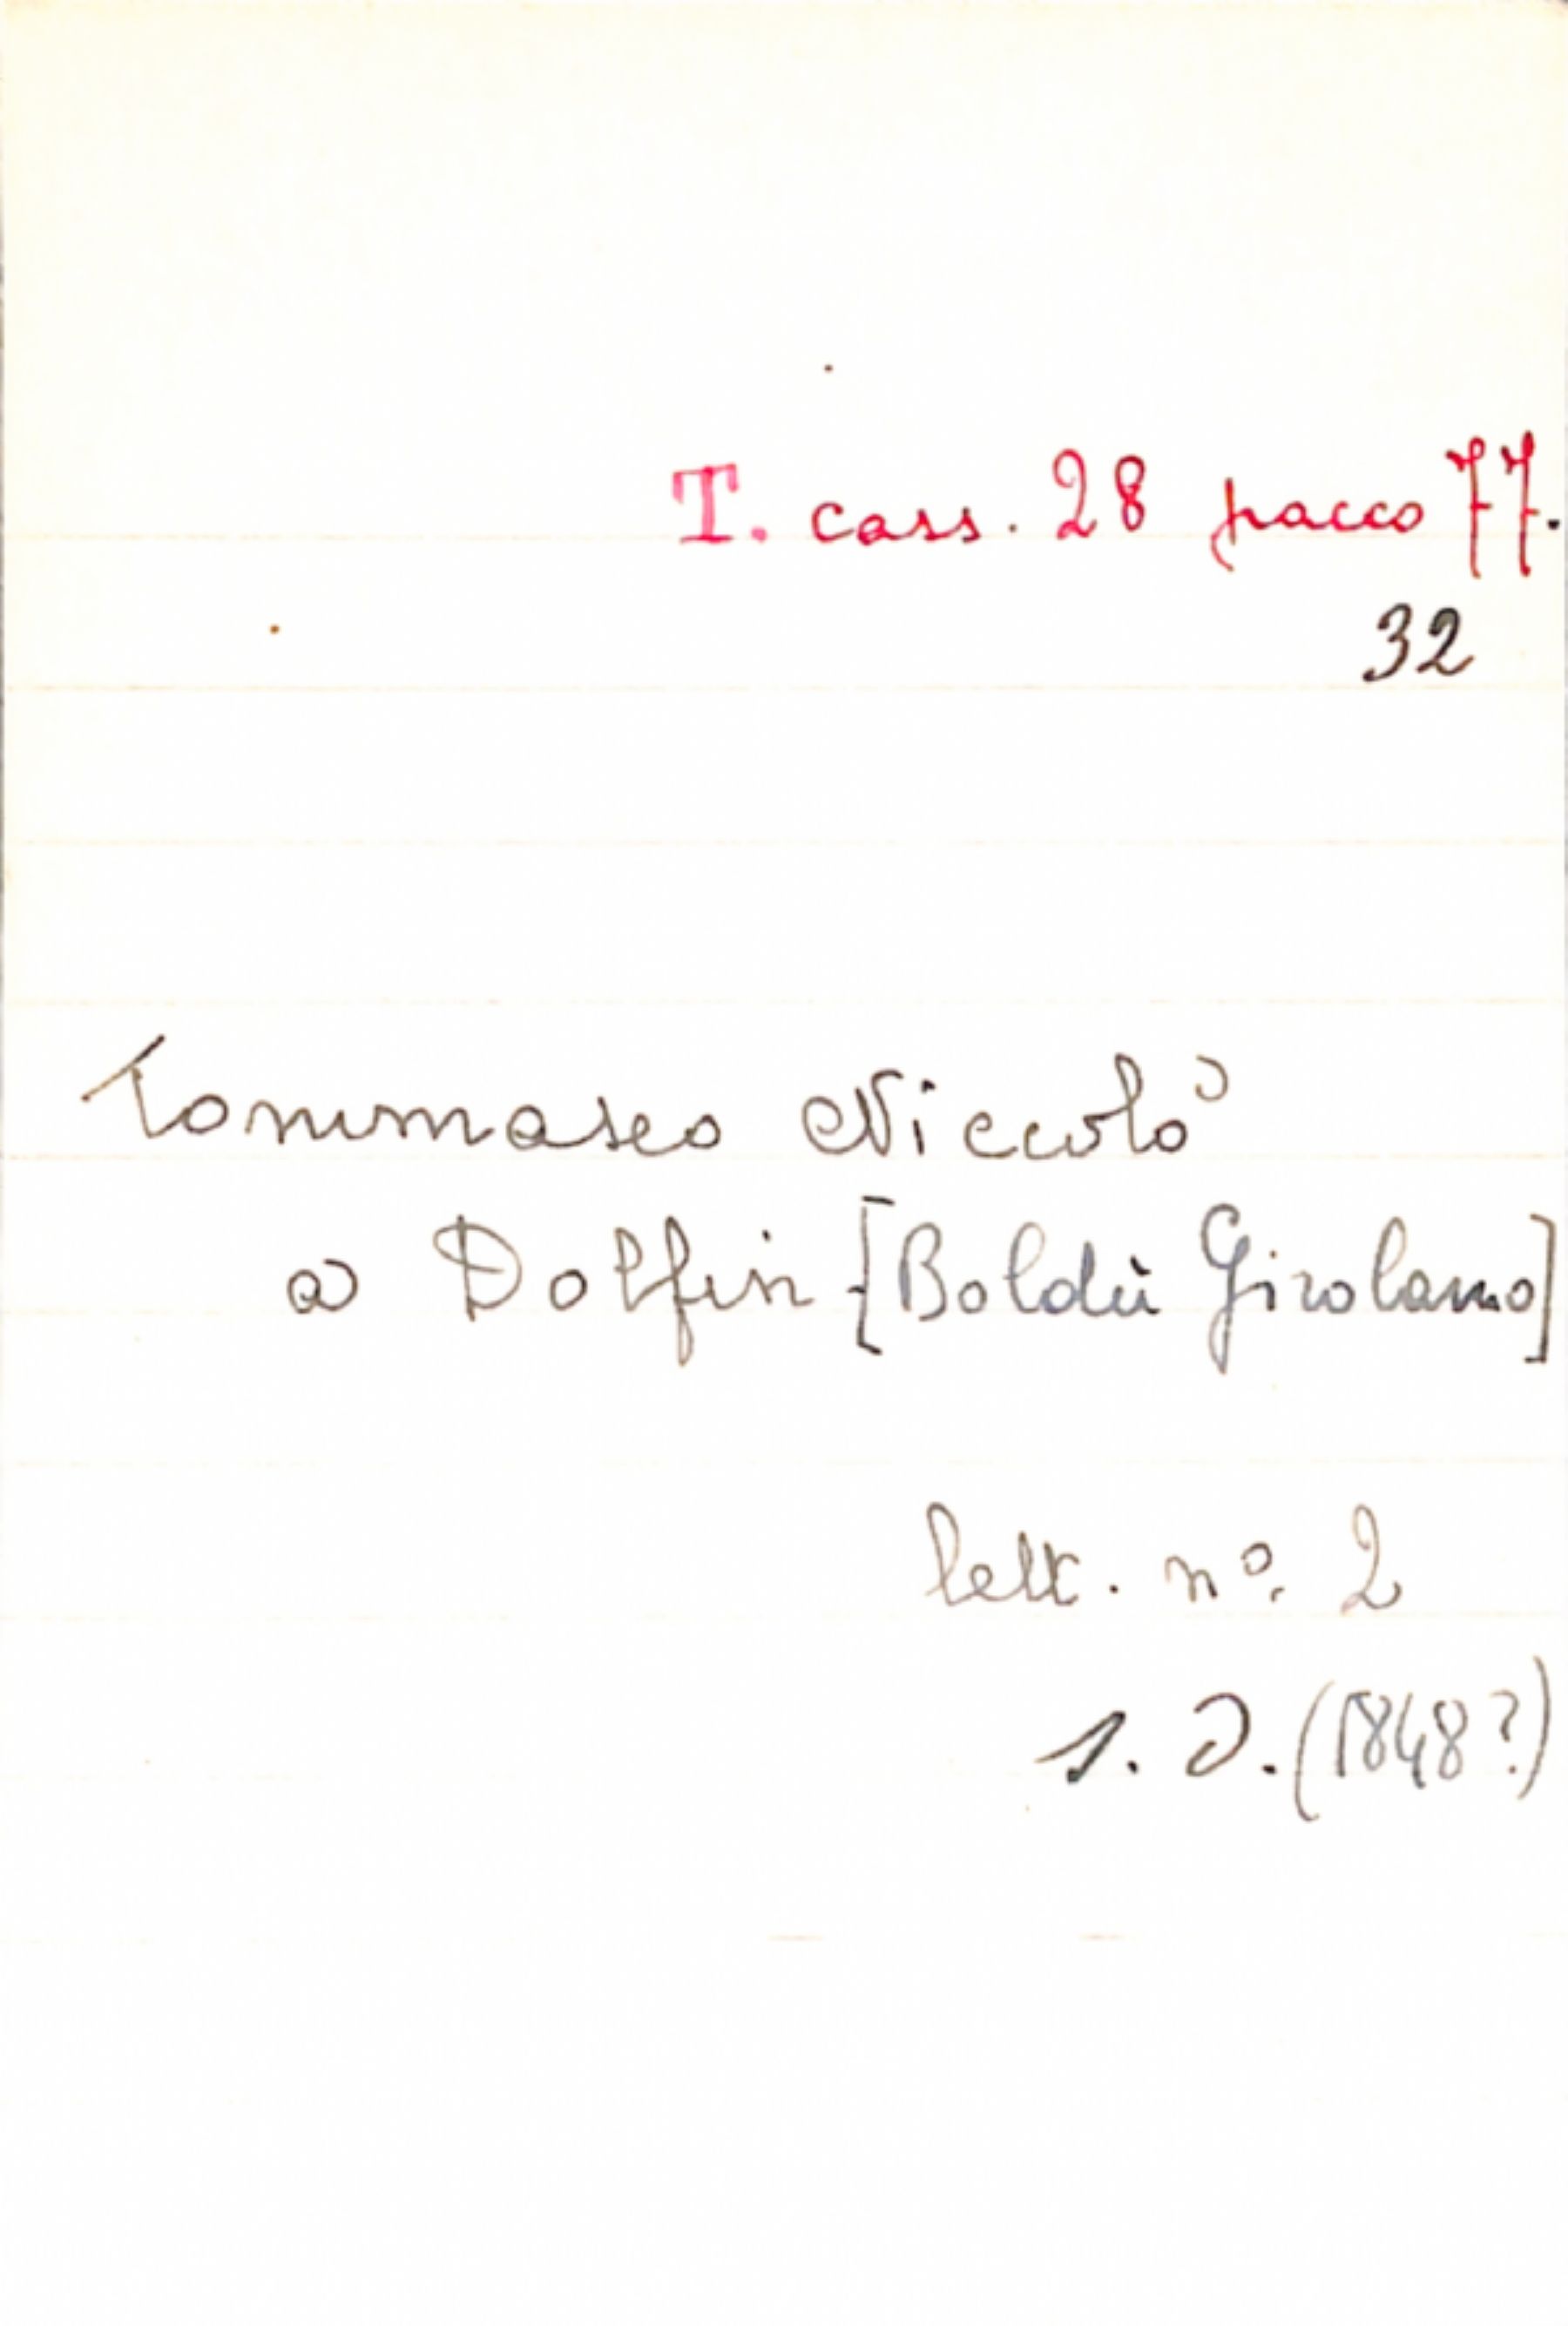 T. cass. 28 pacco 77.
32
Tommaseo Niccolò
a Dolfin [Boldù Girolamo]
lett. nº. 2
s. d. (1848?)